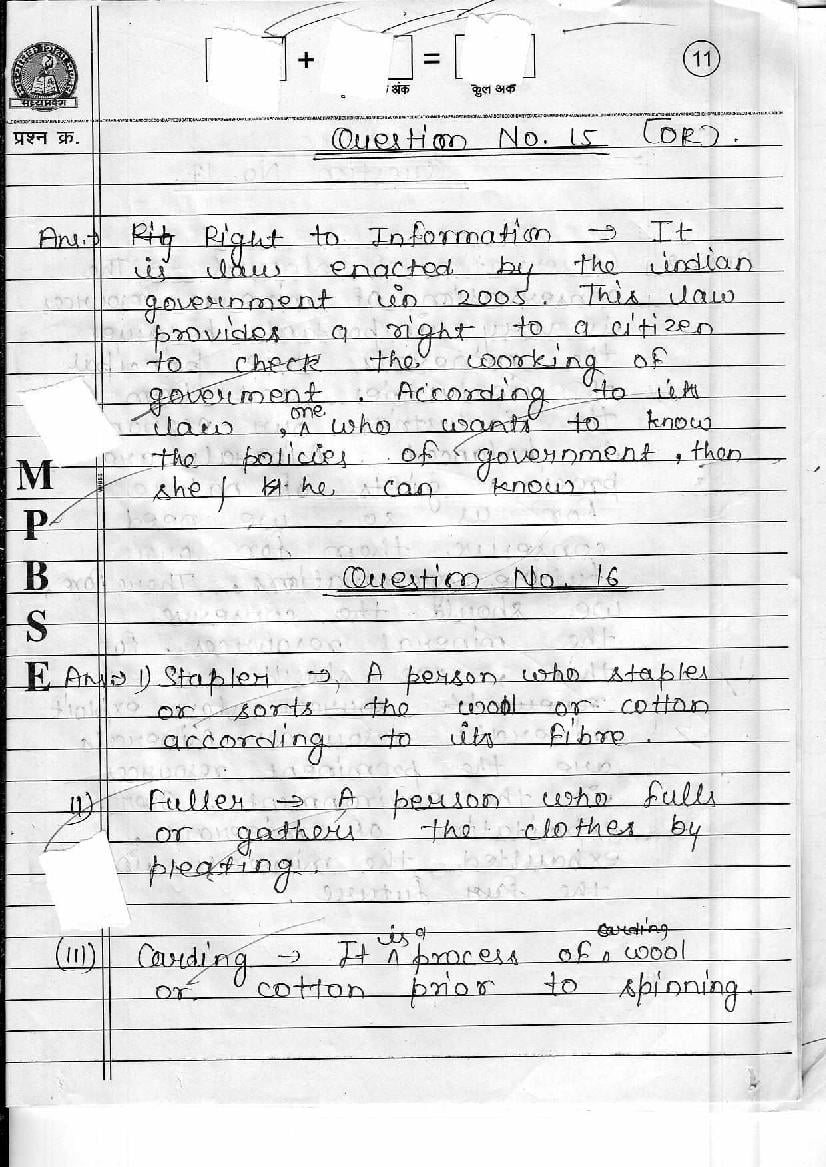 + = 11
अंक कुल अंक
मध्यप्रदेश
प्रश्न क्र. Question No. 15 (OR).
Ans.→ Right to Information → It
is law enacted by the indian
government in 2005. This law
provides a right to a citizen
to check the working of
goverment. According to
law, one who wants to know
the policies of government, then
she/ he can know
Question No. 16
Ans→ 1) Stapler →, A person who staples
or sorts the wool or cotton
according to its fibre.
(II) Fuller → A person who fulls
or gathers the clothes by
pleating.
(III) Carding → It is a process of wool
or cotton prior to spinning.
M
P
B
S
E